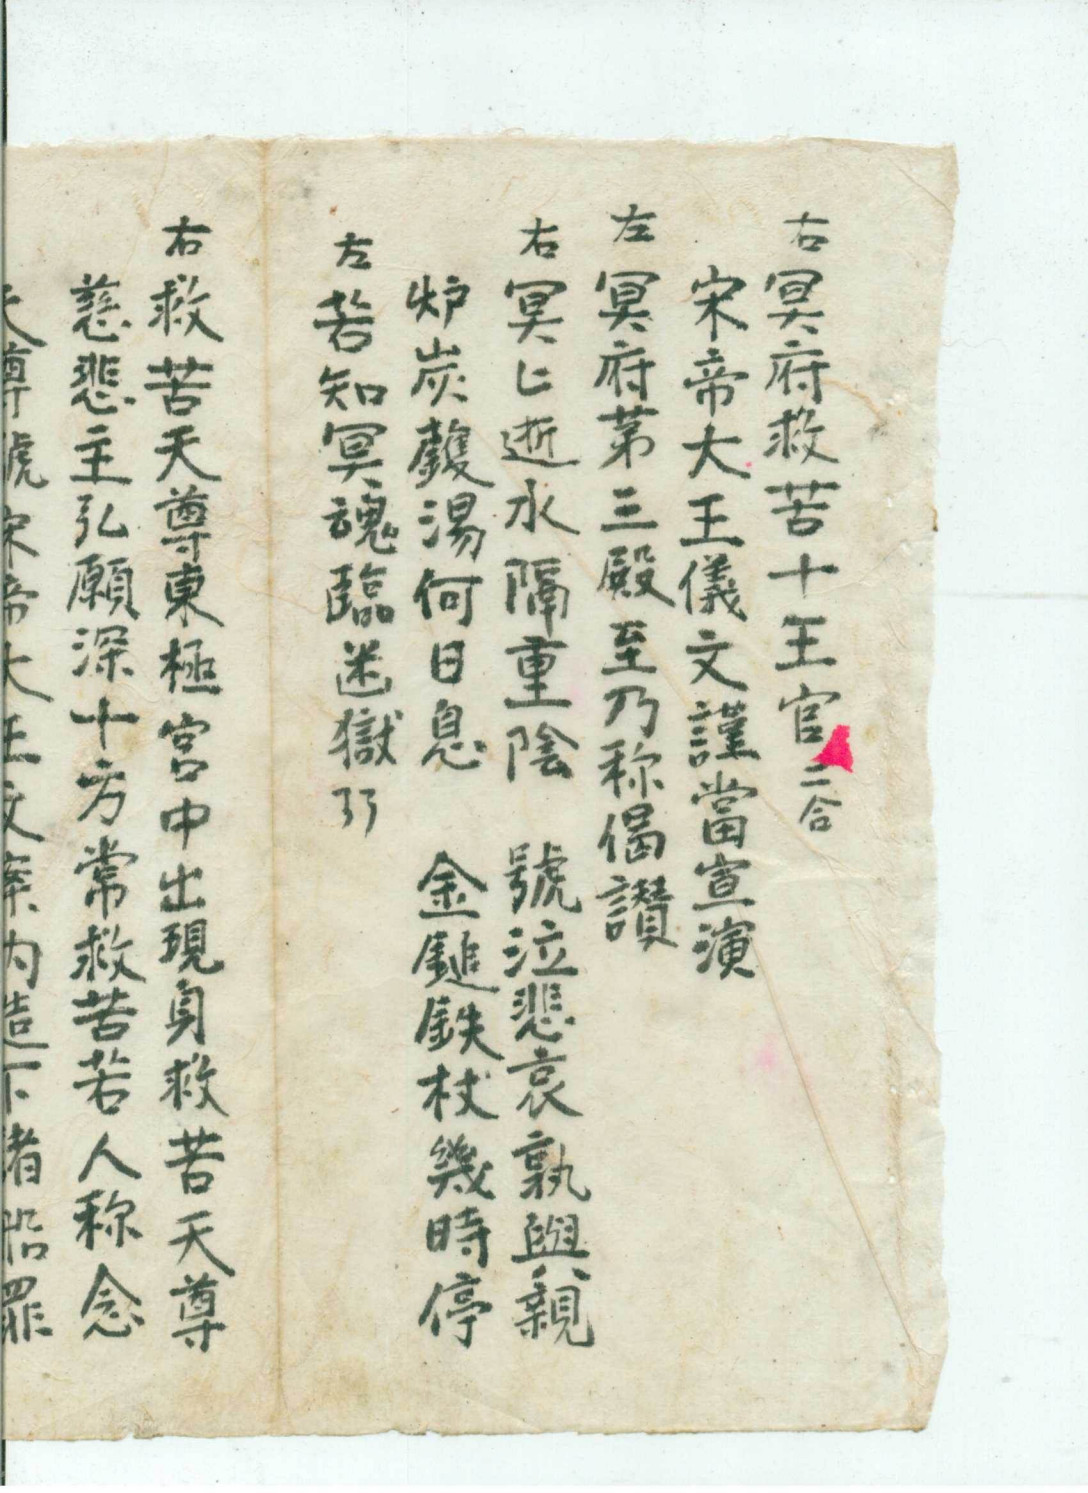 右 冥府救苦十王官 二合
宋帝大王儀文謹當宣演
左 冥府苐三殿至乃称偈讃
右 冥匕逝水隔重陰 號泣悲哀孰與親
炉炭鑊湯何日息 金鎚鉄杖幾時停
左 若知冥魂臨迷獄
右 救苦天尊東極宮中出現身救苦天尊
慈悲主弘願深十方常救苦若人称念
天尊號宋帝大王文案内造下諸般罪